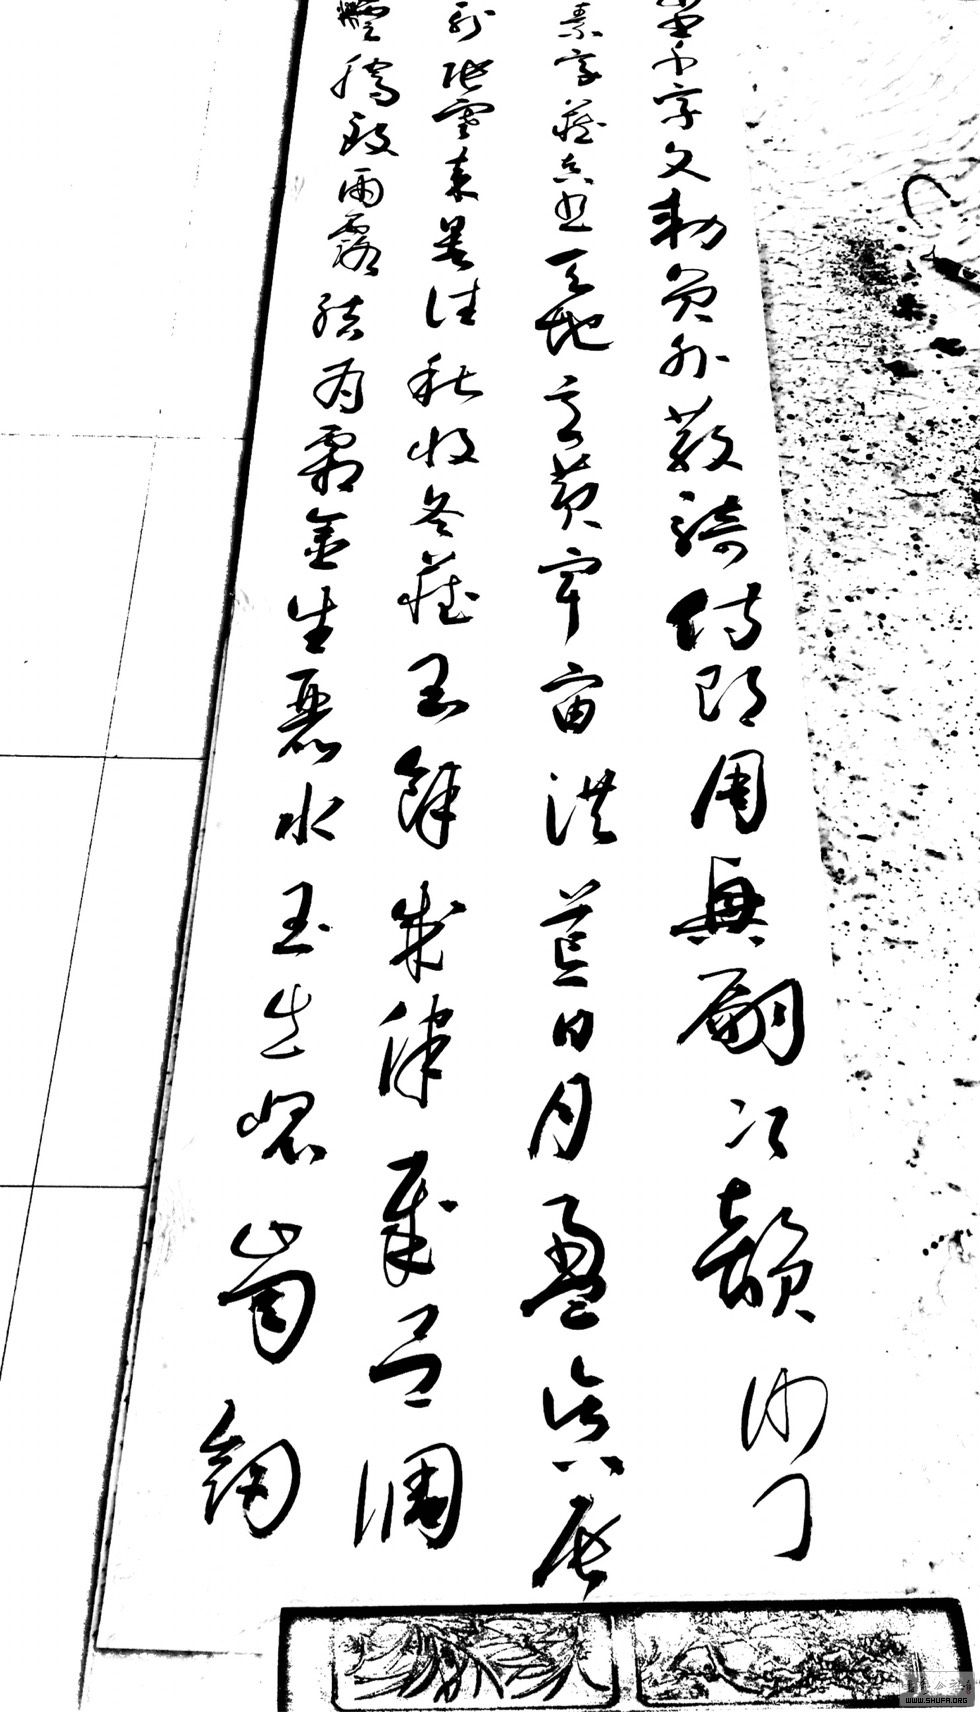 千字文勅員外散騎侍郎周興嗣次韻沙門
素字藏真書天地玄黃宇宙洪荒日月盈昃辰
列張寒來暑往秋收冬藏閏餘成律歲呂調
雲騰致雨露結為霜金生麗水玉出崑崗劍
WWW.SHUFA.ORG